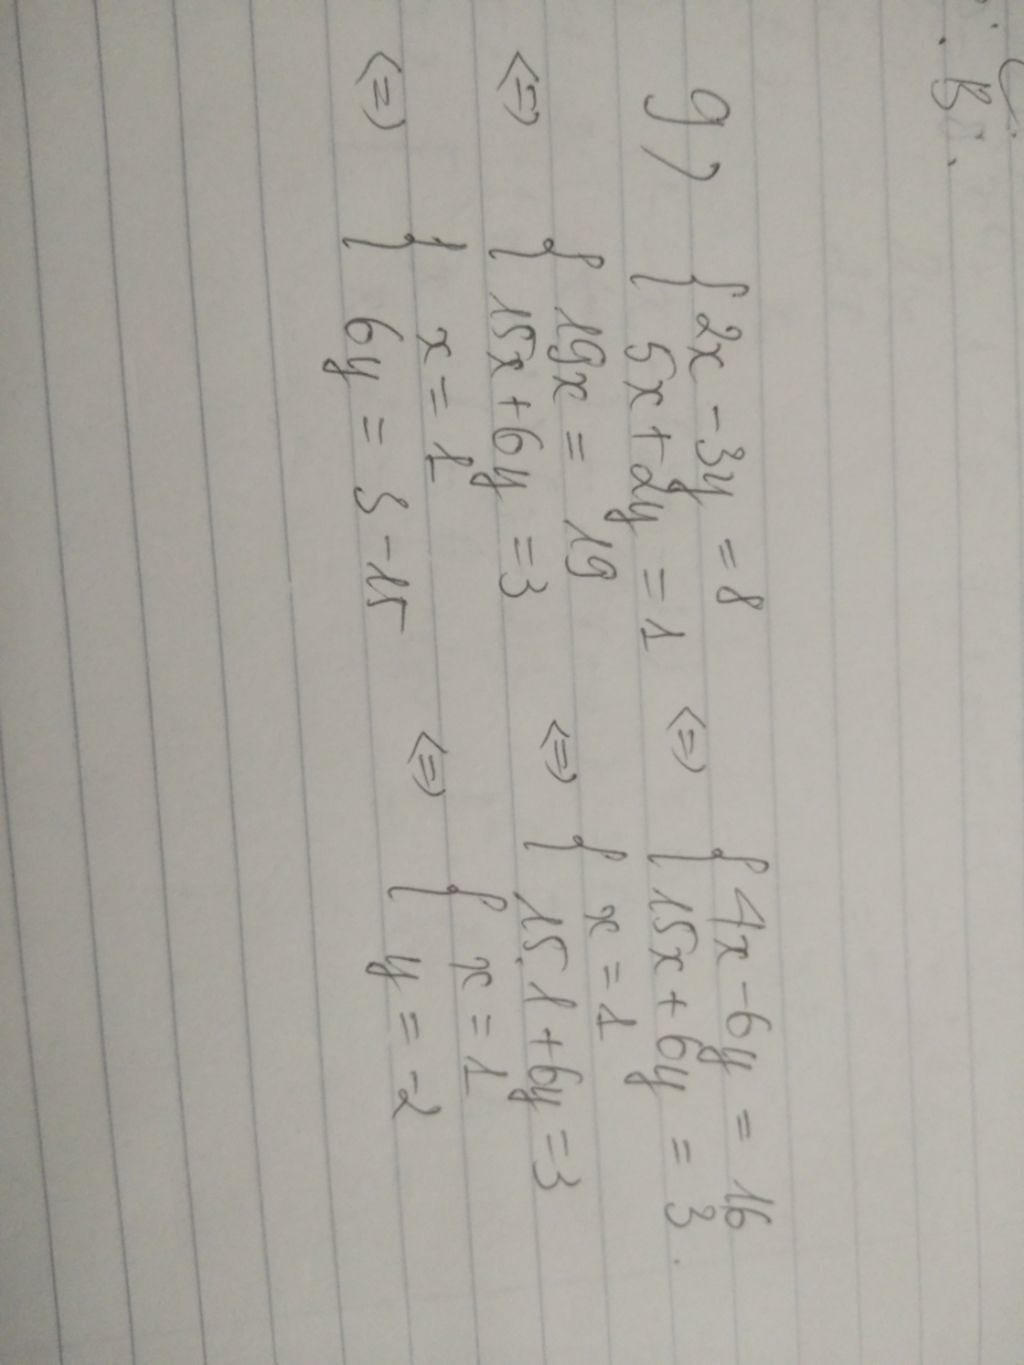 g) { 2x - 3y = 8
5x + 2y = 1 <=> { 4x - 6y = 16
15x + 6y = 3.
<=> { 19x = 19
15x + 6y = 3 <=> { x = 1
15.1 + 6y = 3
<=> { x = 1
6y = 3 - 15 <=> { x = 1
y = -2